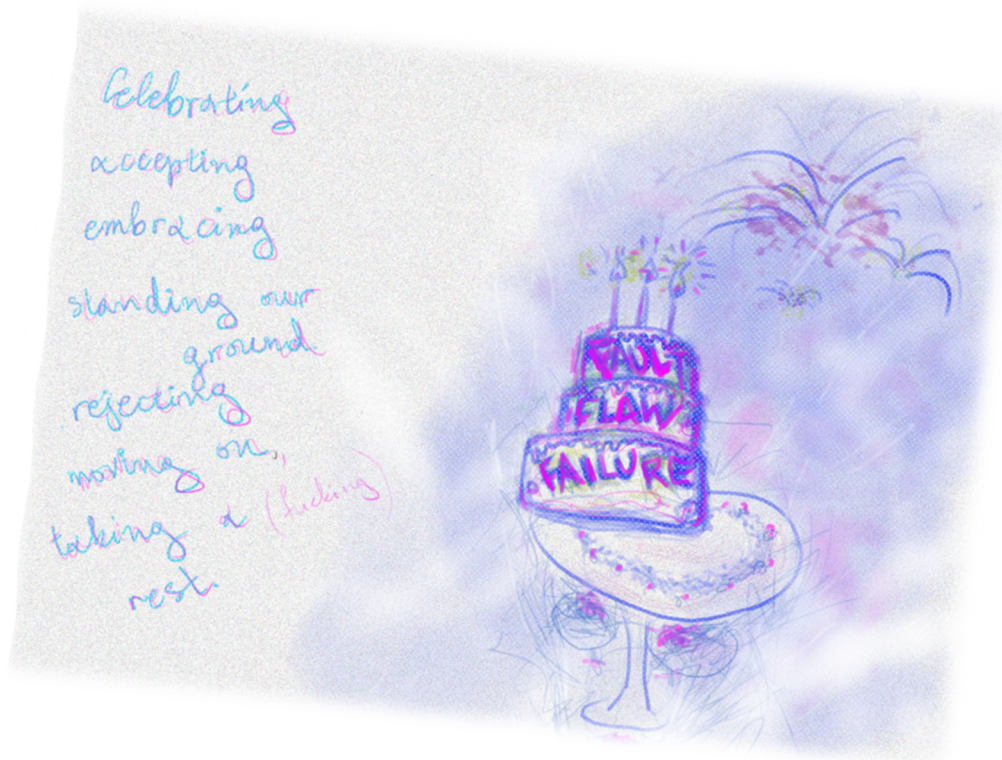 Celebrating
accepting
embracing
standing our
ground
rejecting
moving on,
taking a (fucking)
rest.
FAULT
FLAW
FAILURE